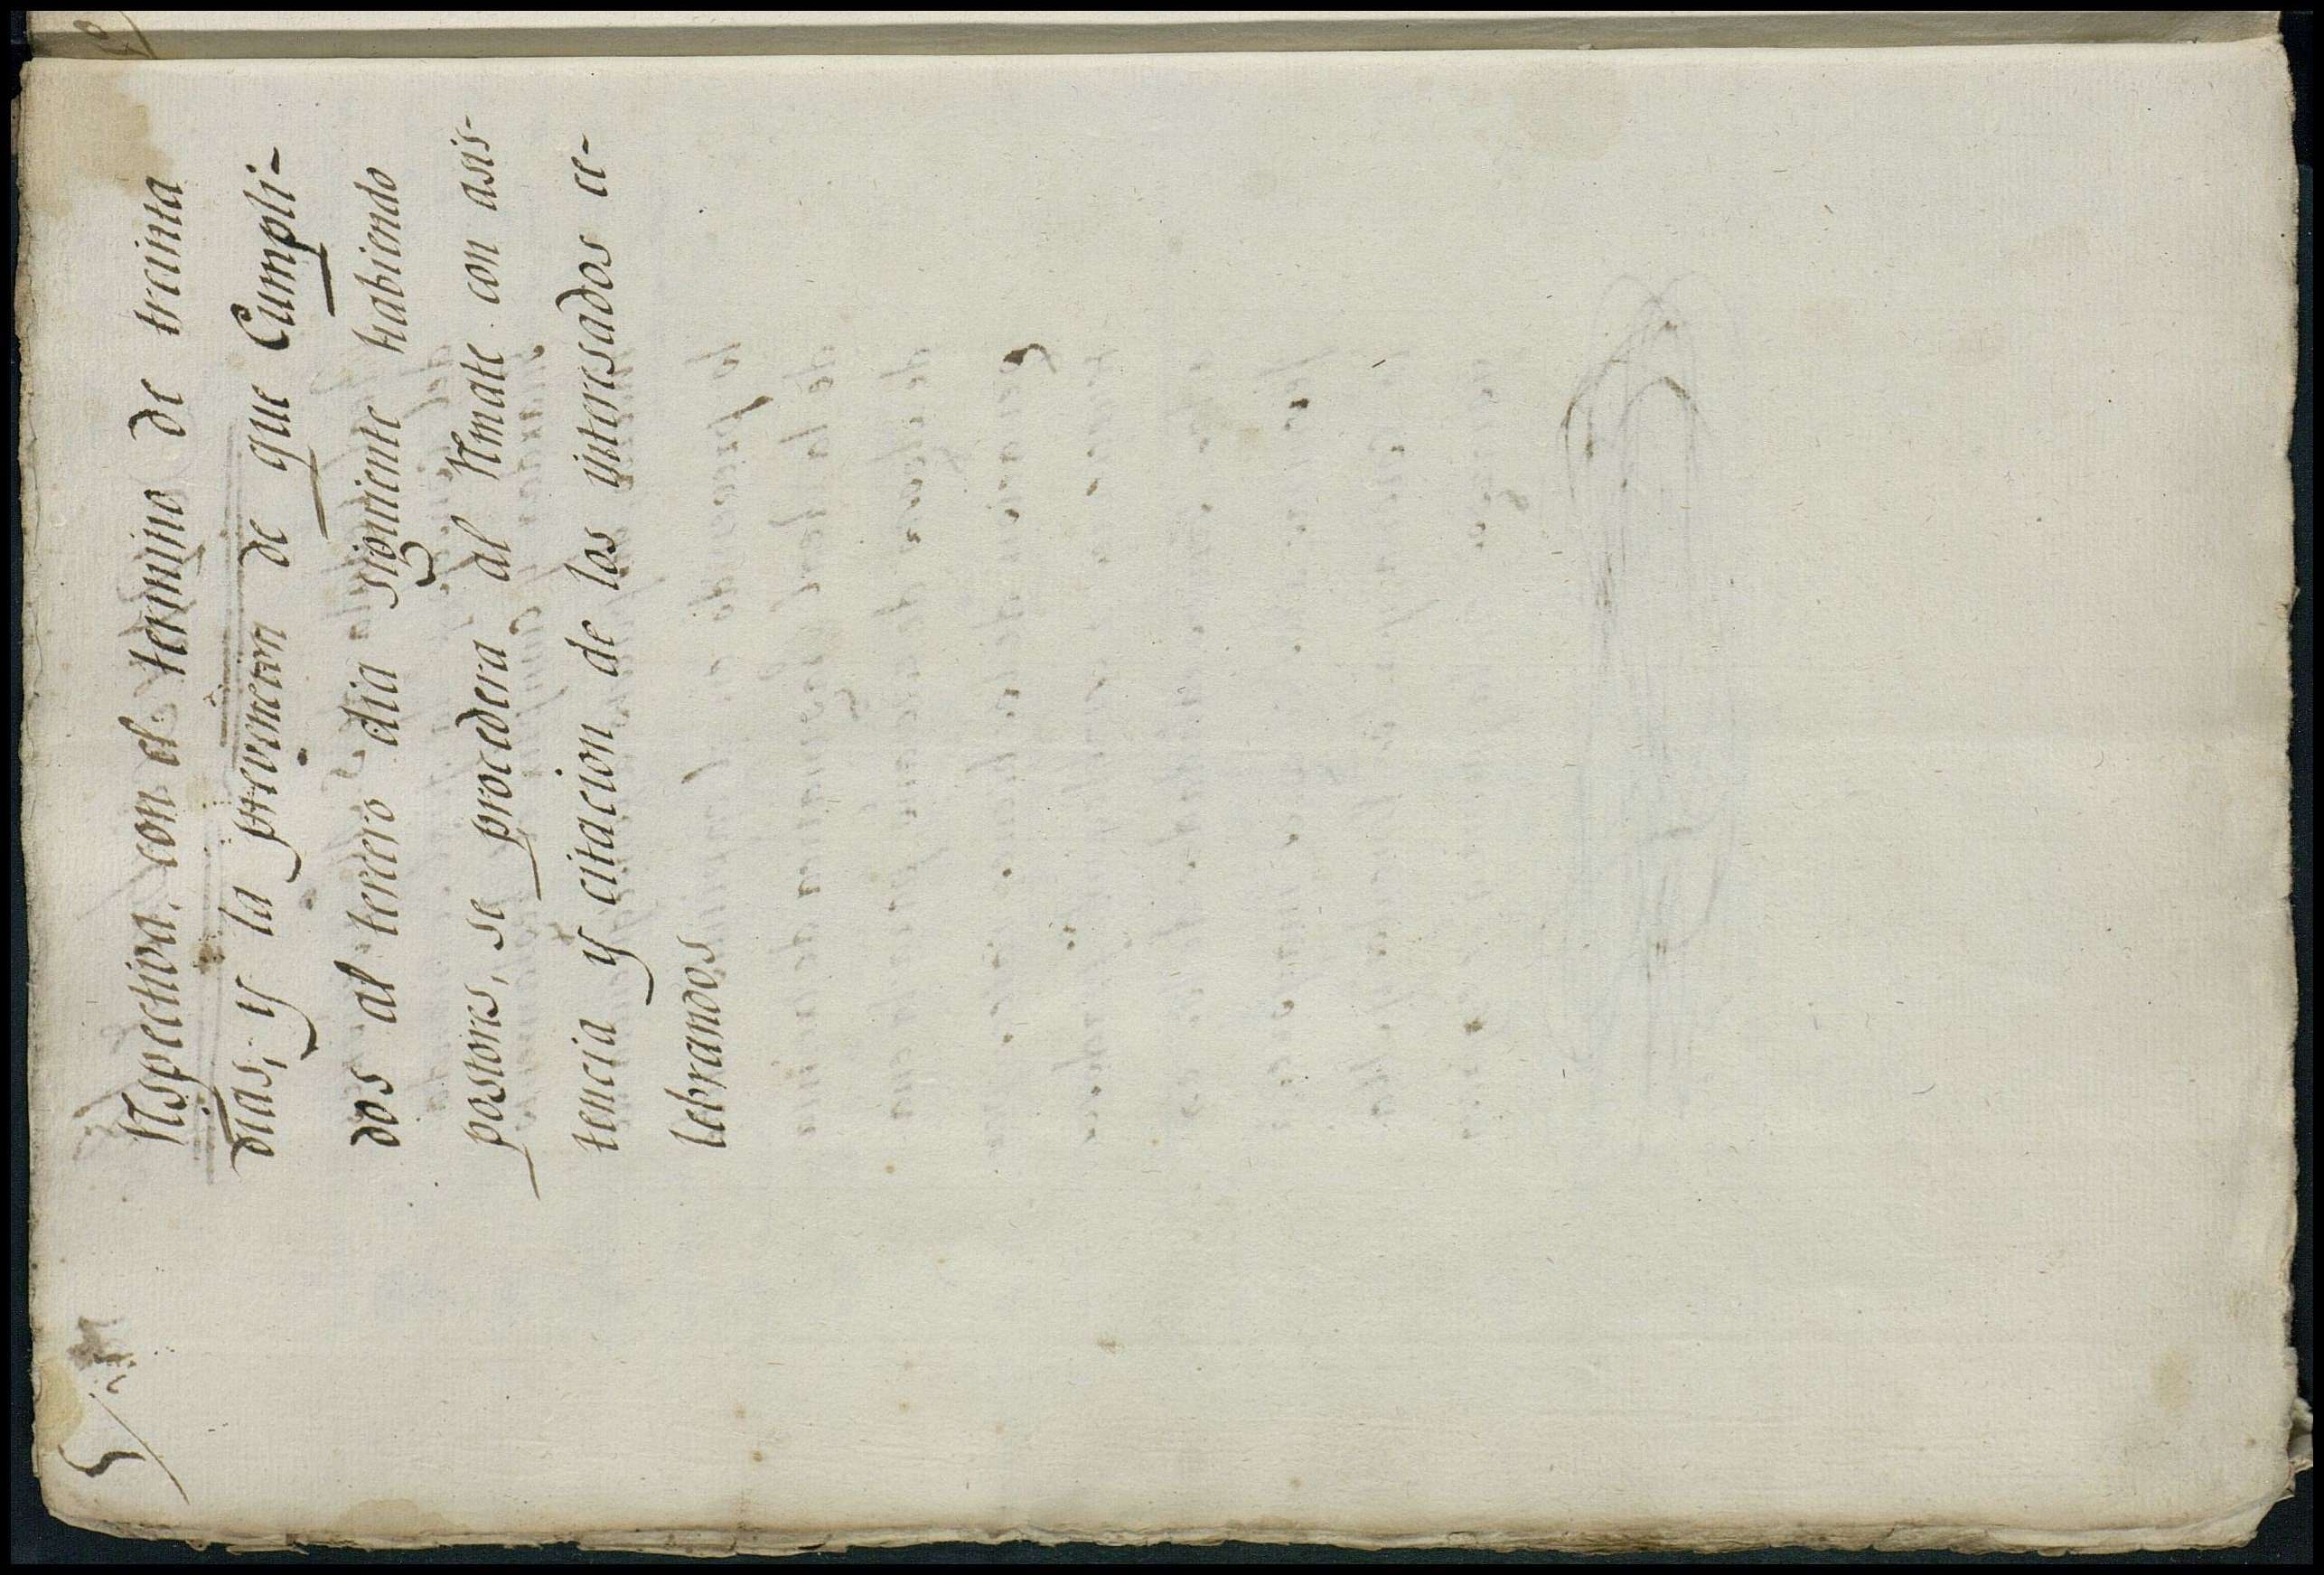 Respectiva, con el termino de treinta
dias, y la prevencion de que Cumpli-
dos al tercero dia siguiente habiendo
postores, se procedera al Remate con asis-
tencia y citacion de los interesados ce-
lebrandos